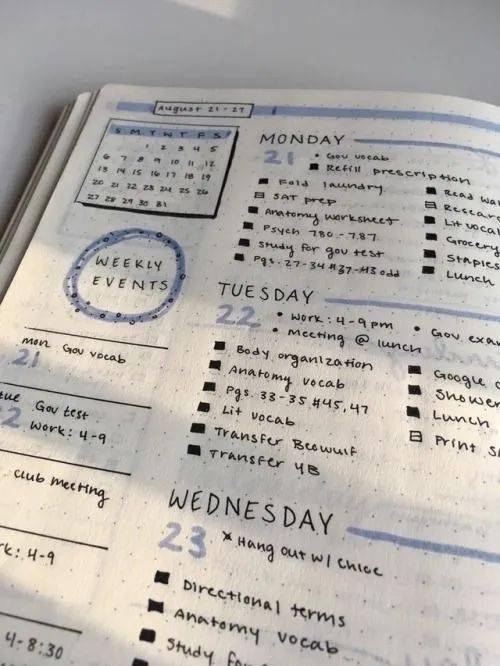 August 21-27
S M T W T F S
1 2 3 4 5
6 7 8 9 10 11 12
13 14 15 16 17 18 19
20 21 22 23 24 25 26
27 28 29 30 31
WEEKLY
EVENTS
mon Gov vocab
21
Gov test
work: 4-9
club meeting
4-9
4-8:30
MONDAY
21
• Gov vocab
Refill prescription
Fold laundry
SAT prep
Anatomy worksheet
Psych 780-787
Study for gov test
Pgs. 27-34 #37-43 odd
Read
Lit
Grocery
Staples
Lunch
TUESDAY
22
• work: 4-9pm
• meeting @ lunch
• Gov
Body organization
Anatomy vocab
Pgs. 33-35 #45,47
Lit vocab
Transfer Beowulf
Transfer YB
Google
Shower
Lunch
Print
WEDNESDAY
23
* Hang out w/ Chloe
Directional terms
Anatomy vocab
Study